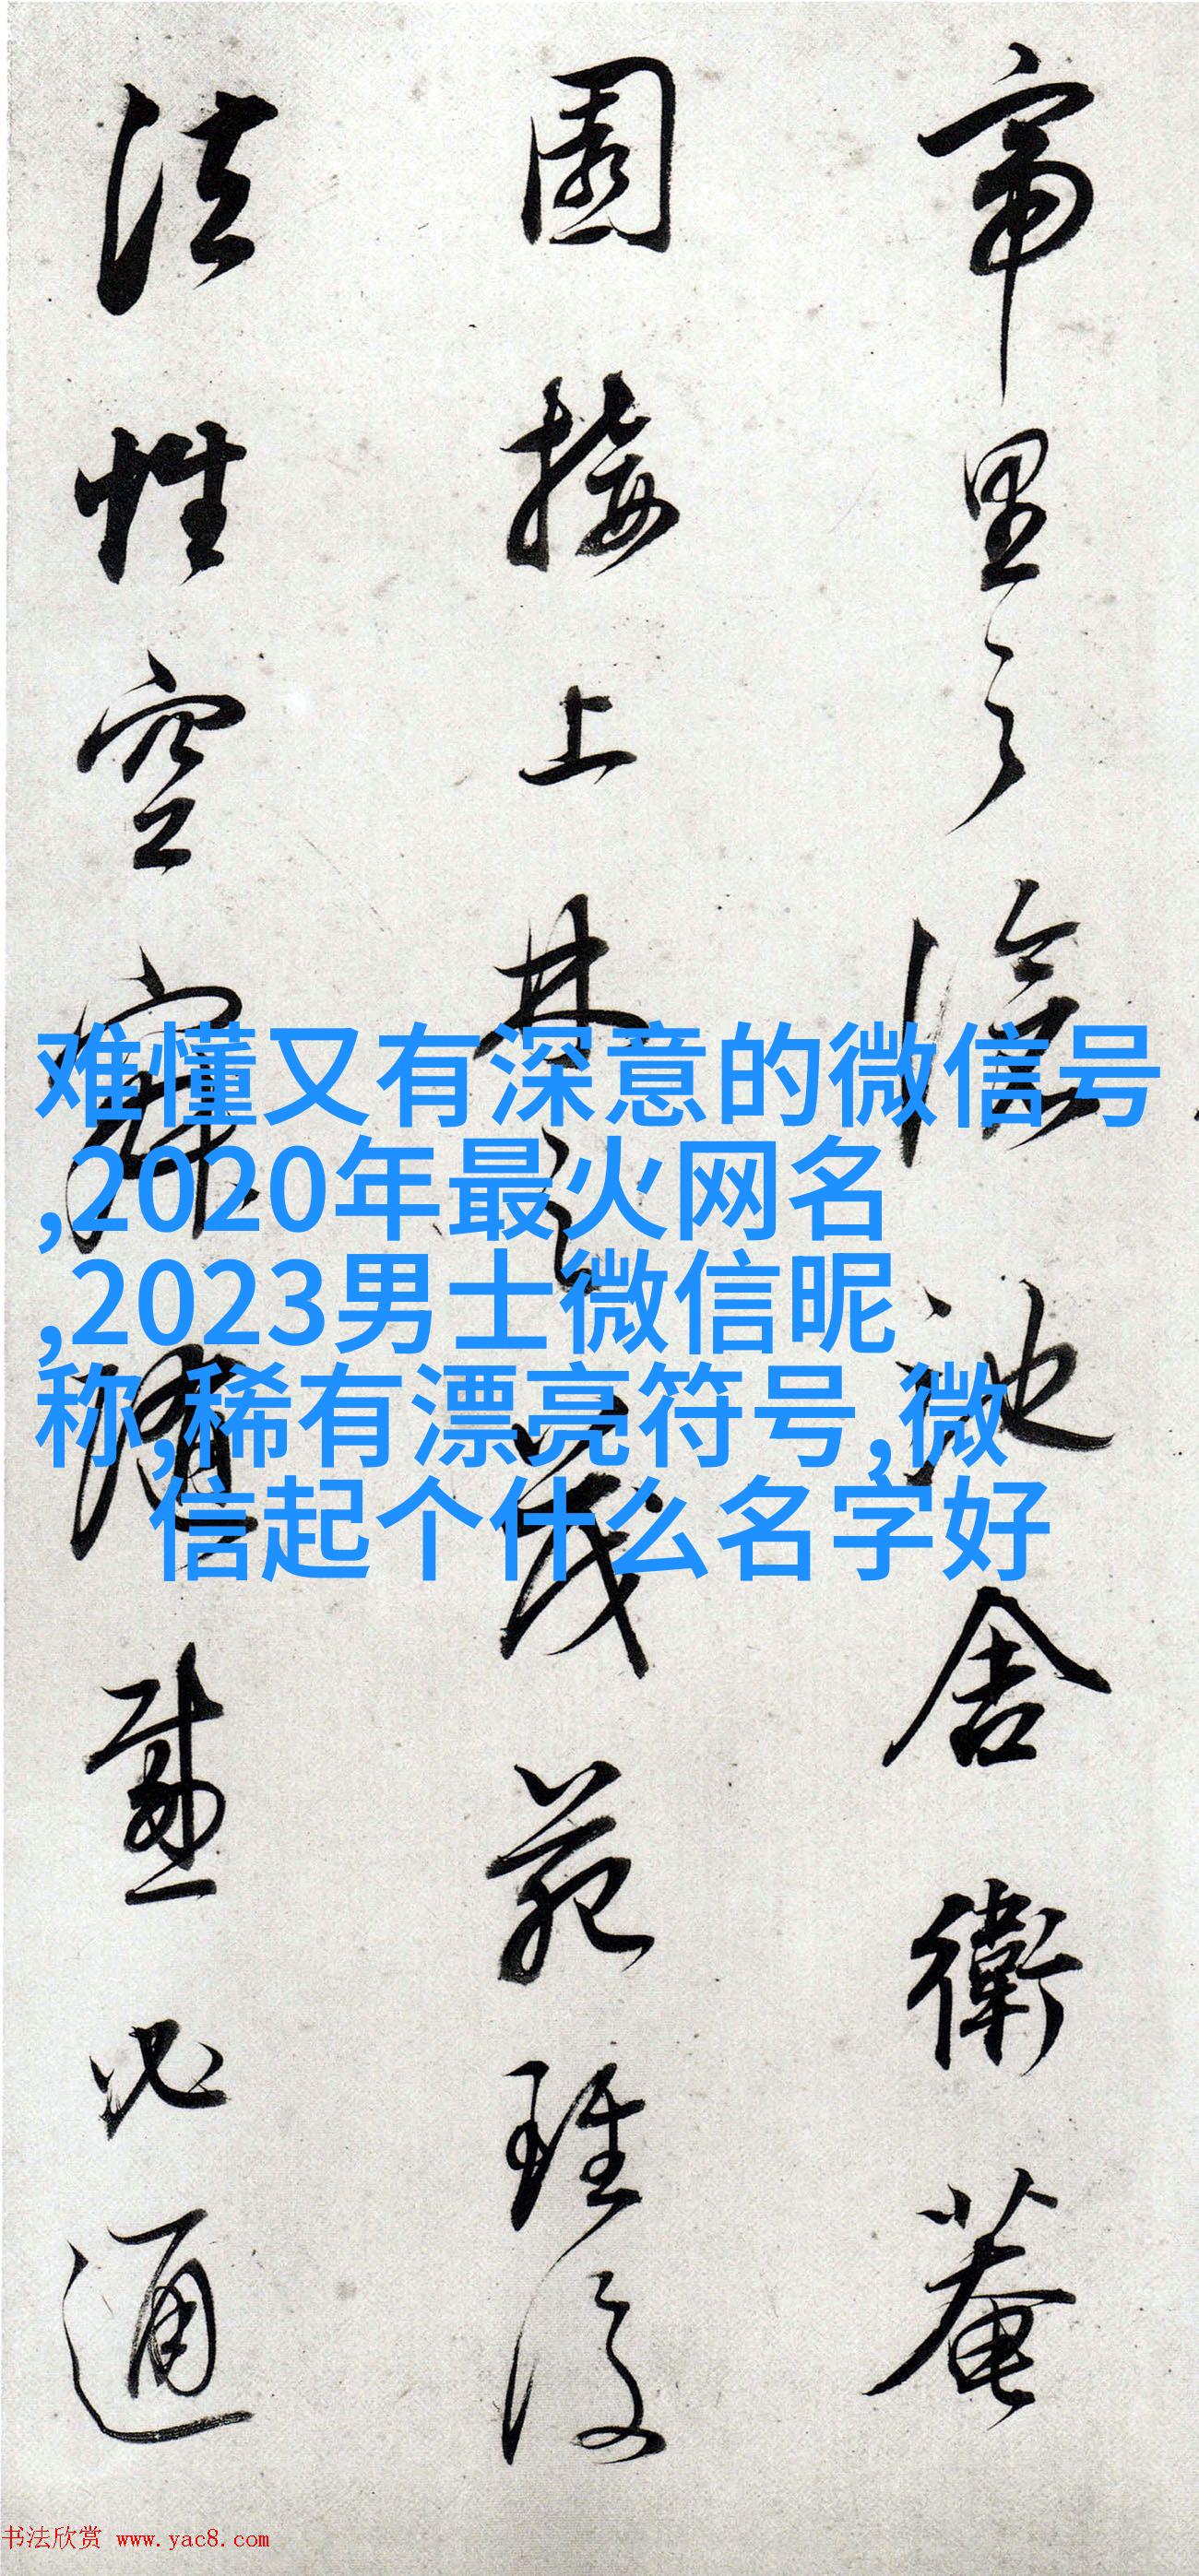 帝里之滄池舍衛菴
園接上林之茂苑雖復
法性空寂隨感必通
难懂又有深意的微信号
,2020年最火网名
,2023男士微信昵
称,稀有漂亮符号,微
信起个什么名字好
书法欣赏 www.yac8.com